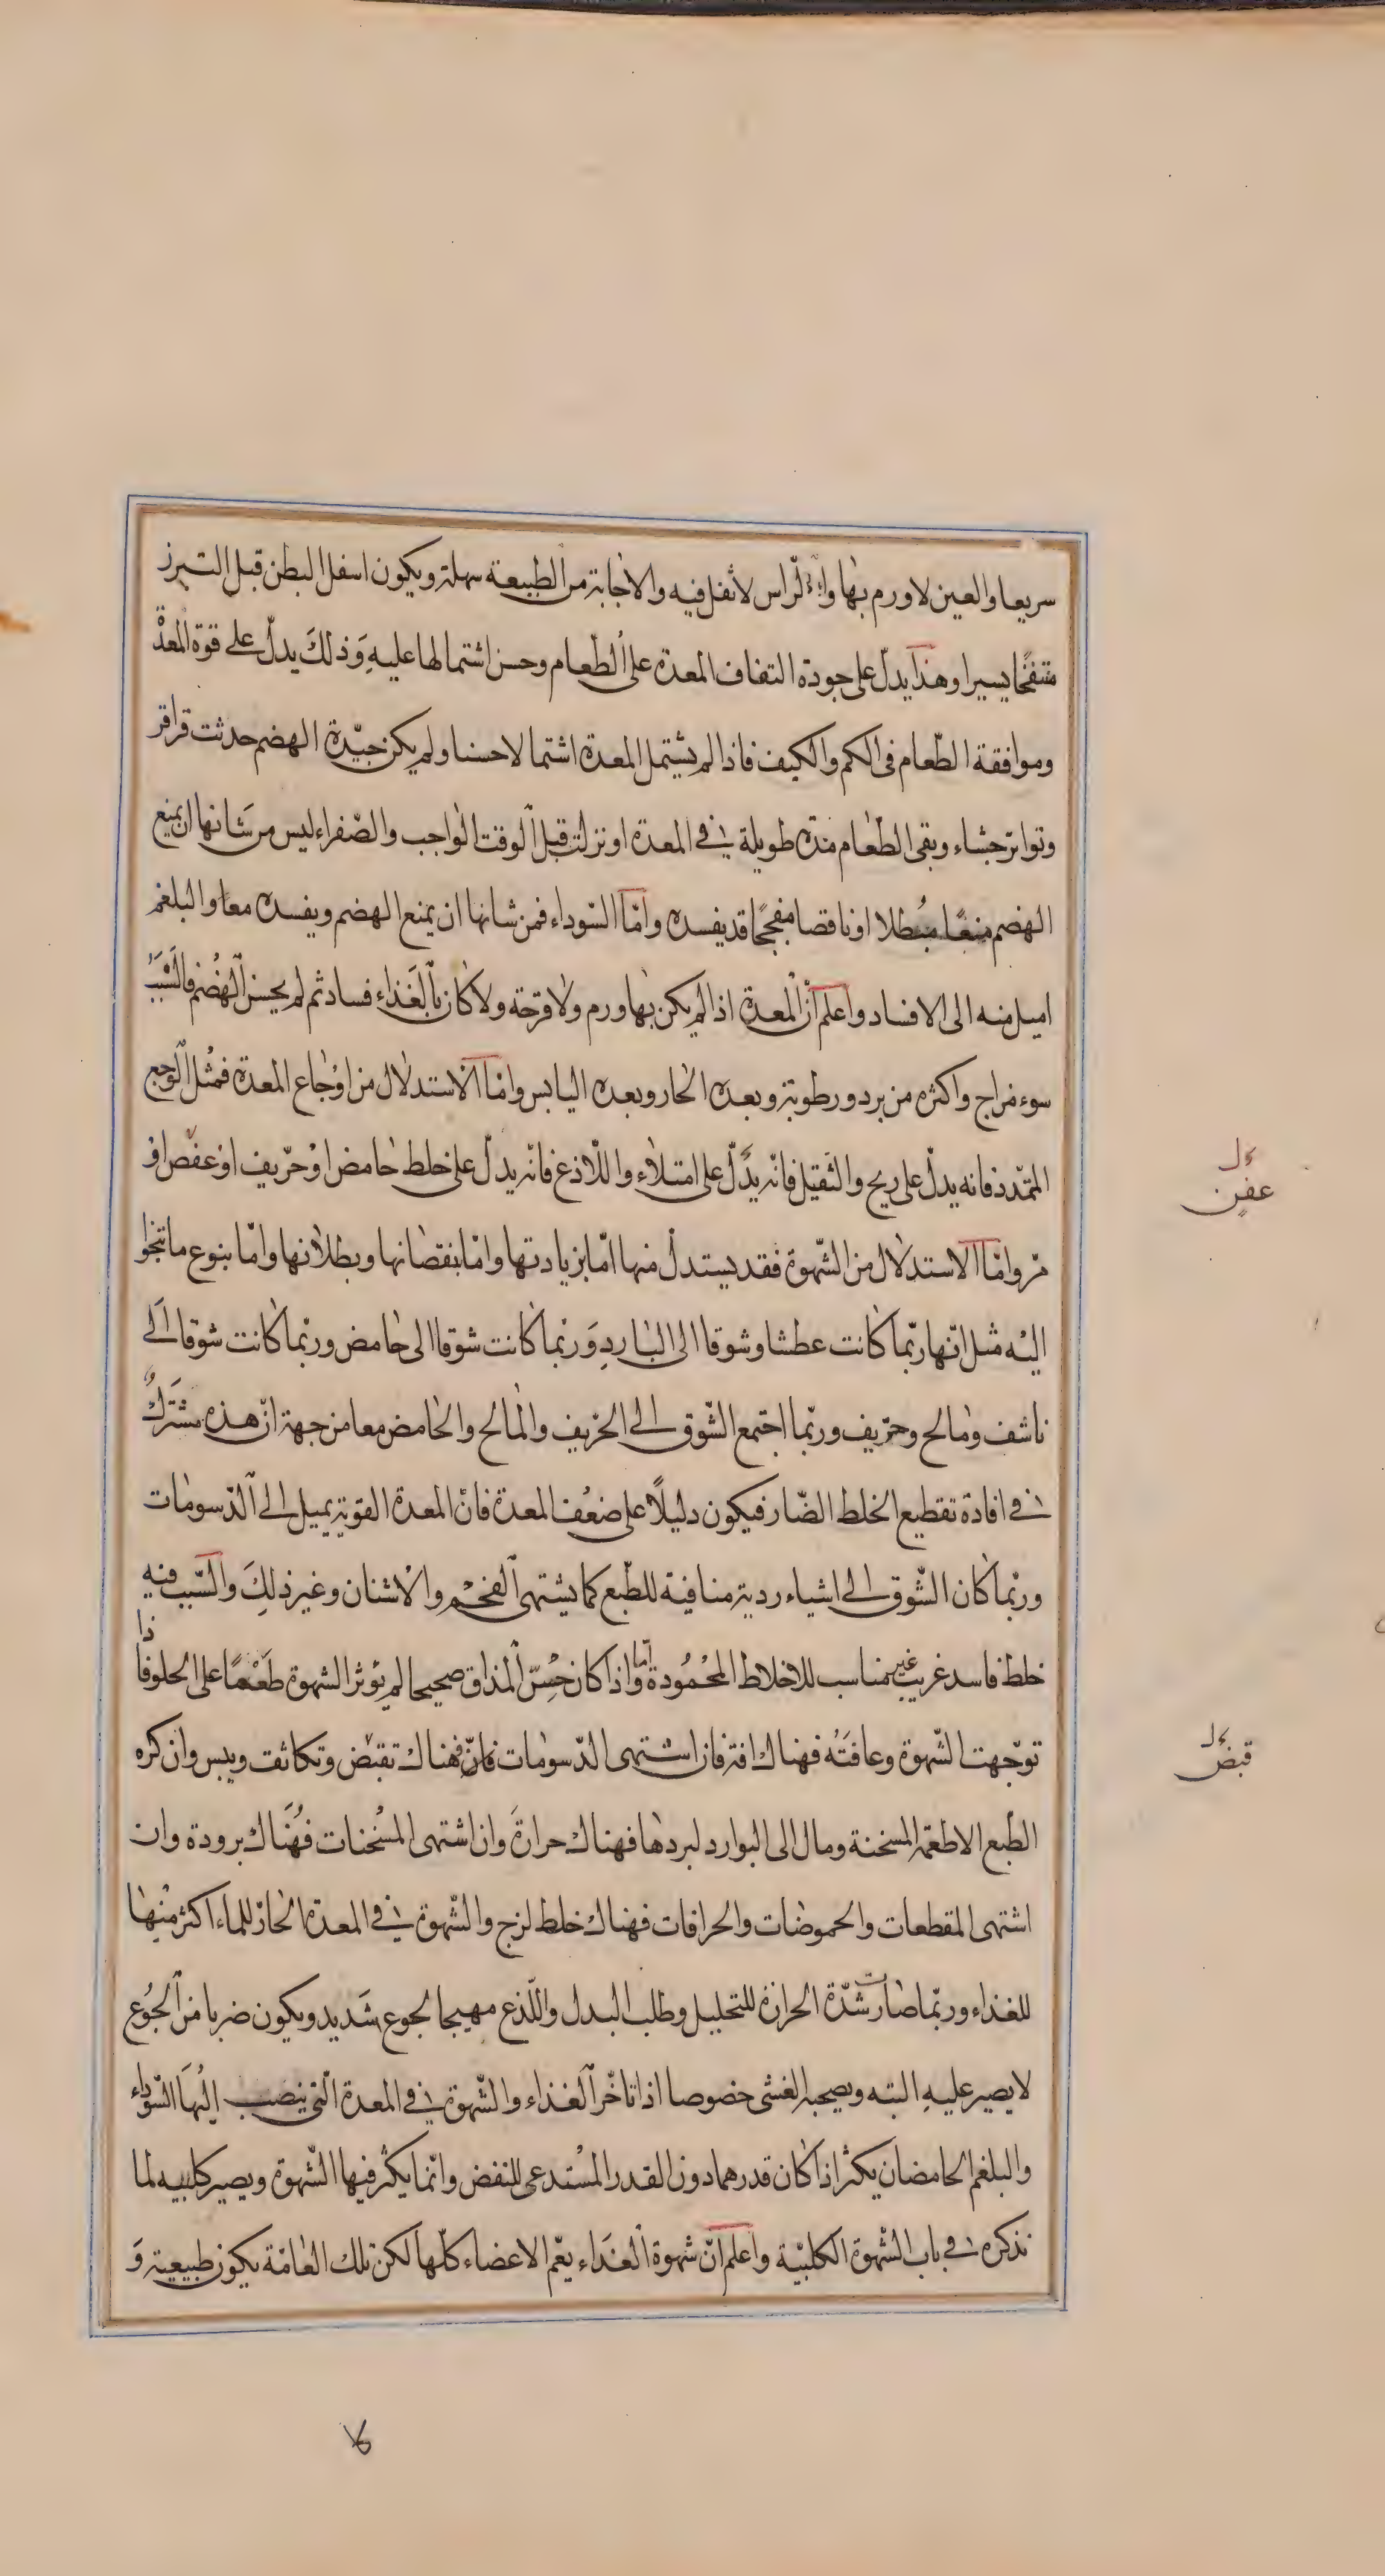 سريعا والعين لا ورم بها والراس لا ثقل فيه والاجابة من الطبيعة سهلة ويكون اسفل البطن قبل التبرز
منتفخا يسيرا وهذا يدل على جودة التفاف المعدة على الطعام وحسن اشتمالها عليه وذلك يدل على قوة المعدة
وموافقة الطعام فى الكم والكيف فاذا لم يشتمل المعدة اشتمالا حسنا ولم يكن جيدة الهضم حدثت قراقر
وتواتر جشاء وبقى الطعام مدة طويلة فى المعدة او نزلت قبل الوقت الواجب والصفراء ليس من شانها ان يمنع
الهضم منعا مبطلا او ناقصا مفججا قد يفسده واما السوداء فمن شانها ان يمنع الهضم ويفسده معا والبلغم
اميل منه الى الافساد واعلم ان المعدة اذا لم يكن بها ورم ولا قرحة ولا كان بالغذاء فساد ثم لم يحسن الهضم فالسبب
سوء مزاج واكثره من برد ورطوبة وبعده الحار وبعده اليابس واما الاستدلال من اوجاع المعدة فمثل الوجع
الممدد فانه يدل على ريح والثقيل فانه يدل على امتلاء واللاذع فانه يدل على خلط حامض او حريف او عفص او
مر واما الاستدلال من الشهوة فقد يستدل منها اما بزيادتها واما بنقصانها وبطلانها واما بنوع ما تنحو
اليه مثل انها ربما كانت عطشا وشوقا الى البارد وربما كانت شوقا الى حامض وربما كانت شوقا الى
ناشف ومالح وحريف وربما اجتمع الشوق الى الحريف والمالح والحامض معا من جهة ان هذه مشتركة
فى افادة تقطيع الخلط الضار فيكون دليلا على ضعف المعدة فان المعدة القوية يميل الى الدسومات
وربما كان الشوق الى اشياء ردية منافية للطبع كما يشتهى الفحم والاشنان وغير ذلك والسبب فيه
خلط فاسد غريب غير مناسب للاخلاط المحمودة اما واذا كان حس المذاق صحيحا لم يؤثر الشهوة طعما على الحلو فاذا
توجهت الشهوة وعافته فهناك افة فان اشتهى الدسومات فان فهناك تقبض وتكاثف ويبس وان كره
الطبع الاطعمة المسخنة ومال الى البوارد لبردها فهناك حرارة وان اشتهى المسخنات فهناك برودة وان
اشتهى المقطعات والحموضات والحرافات فهناك خلط لزج والشهوة فى المعدة الحارة للماء اكثر منها
للغذاء وربما صارت شدة الحرارة للتحليل وطلب البدل واللذع مهيجا لجوع شديد ويكون ضربا من الجوع
لا يصبر عليه البتة ويصحبه الغشى خصوصا اذا تاخر الغذاء والشهوة فى المعدة التى ينصب اليها السوداء
والبلغم الحامضان يكثر اذا كان قدرهما دون القدر المستدعى للنفض وانما يكثر فيها الشهوة ويصير كلبيه لما
نذكره فى باب الشهوة الكلبية واعلم ان شهوة الغذاء يعم الاعضاء كلها لكن تلك العامة يكون طبيعية و
عفن
قبض